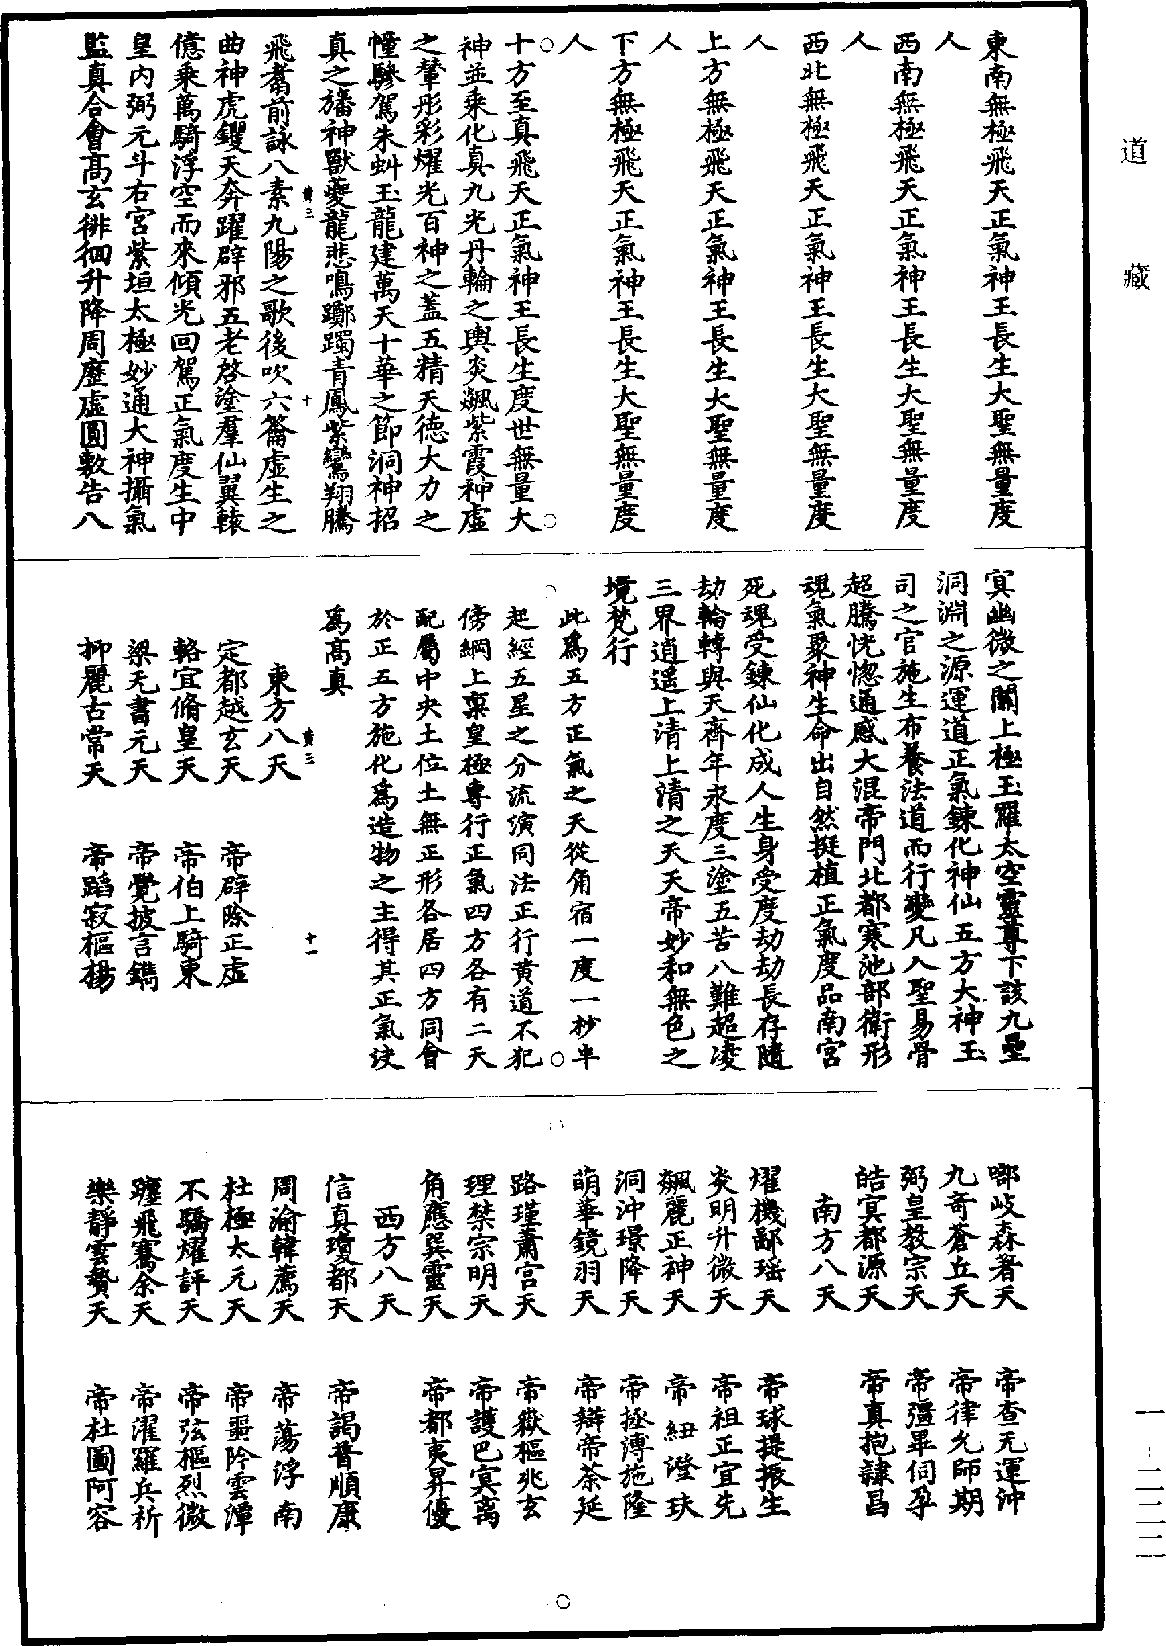 東南無極飛天正氣神王長生大聖無量度
人
西南無極飛天正氣神王長生大聖無量度
人
西北無極飛天正氣神王長生大聖無量度
人
上方無極飛天正氣神王長生大聖無量度
人
下方無極飛天正氣神王長生大聖無量度
人
十方至真飛天正氣神王長生度世無量大
神並乘化真九光丹輪之輿炎飆紫霞神虛
之輦彤彩耀光百神之蓋五精天德大力之
幢驂駕朱虯玉龍建萬天十華之節洞神招
真之旛神獸夔龍悲鳴躑躅青鳳紫鸞翔騰
飛翥前詠八素九陽之歌後吹六籥虛生之
黃三
十
曲神虎钁天奔躍辟邪五老啓塗羣仙翼轅
億乘萬騎浮空而來傾光回駕正氣度生中
皇內弼元斗右宮紫垣太極妙通大神攝氣
監真合會高玄徘徊升降周歷虛圓敷告八
冥幽微之關上極玉羅太空靈尊下該九壘
洞淵之源運道正氣鍊化神仙五方大神王
司之官施生布養法道而行變凡入聖易骨
超騰恍惚通感大混帝門北都寒池部衛形
魂氣聚神生命出自然挺植正氣度品南宮
死魂受鍊仙化成人生身受度劫劫長存隨
劫輪轉與天齊年永度三塗五苦八難超凌
三界逍遙上清上清之天天帝妙和無色之
境梵行
此爲五方正氣之天從角宿一度一秒半
起經五星之分流演同法正行黃道不犯
傍綱上稟皇極專行正氣四方各有二天
配屬中央土位土無正形各居四方同會
於正五方施化爲造物之主得其正氣決
爲高真
東方八天
黃三
十一
定都越玄天 帝辟除正虛
輅宜脩皇天 帝伯上騎東
梁无書元天 帝覺披言鐫
抑麗古常天 帝蹈寂樞楊
嘟岐森署天 帝查无運沖
九奇蒼丘天 帝律允師期
弼皇教宗天 帝彊畢伺孕
皓冥都源天 帝真抱隸昌
南方八天
燿機鄙瑤天 帝球提振生
炎明升微天 帝祖正宜先
飆麗正神天 帝紐澄玞
洞沖璟降天 帝拯溥施隆
萌華鏡羽天 帝辯帝荼延
路瑾肅宮天 帝嶽樞兆玄
理禁宗明天 帝護巴寅离
角應巽靈天 帝都夷昇優
西方八天
信真瓊都天 帝謁晉順康
周渝韓薦天 帝蕩浮南
杜極太元天 帝噩昑雲潭
不驕燿評天 帝弦樞烈微
躔飛騫余天 帝濯羅兵祈
樂靜雲贄天 帝杜圖阿容
道藏
一‐二二二